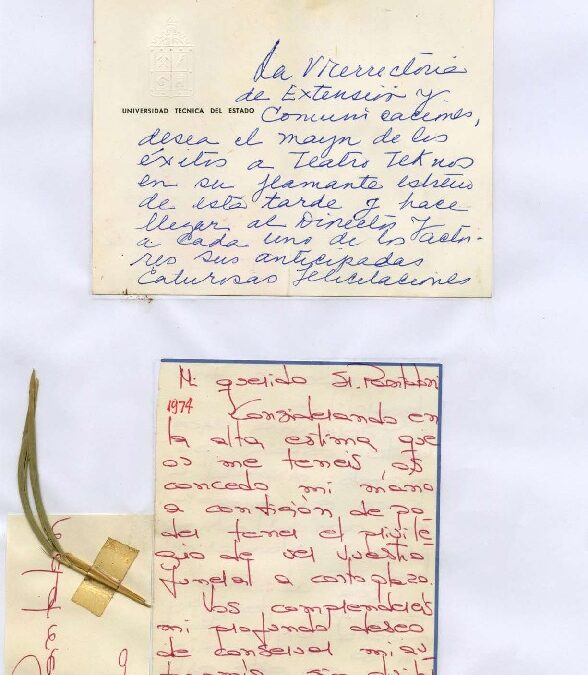 La Vicerrectoria
de Extensión y
UNIVERSIDAD TECNICA DEL ESTADO
Comunicaciones,
desea el mayor de los
éxitos a Teatro Teknos
en su flamante estreno
de esta tarde y hace
llegar al Director y
a cada uno de los Acto-
res sus anticipadas
calurosas felicitaciones
Mi querido Sr.
1974
Considerando en
la alta estima que
os me teneis, os
concedo mi mano
a condición de po-
der tener el privile-
gio de ser vuestro
funeral a corto plazo.
Vos comprendeis
mi profundo deseo
de conservar mi au-